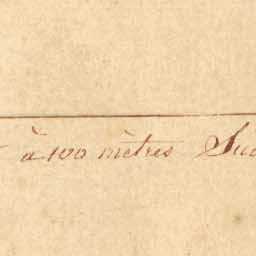 à 100 mètres Sud